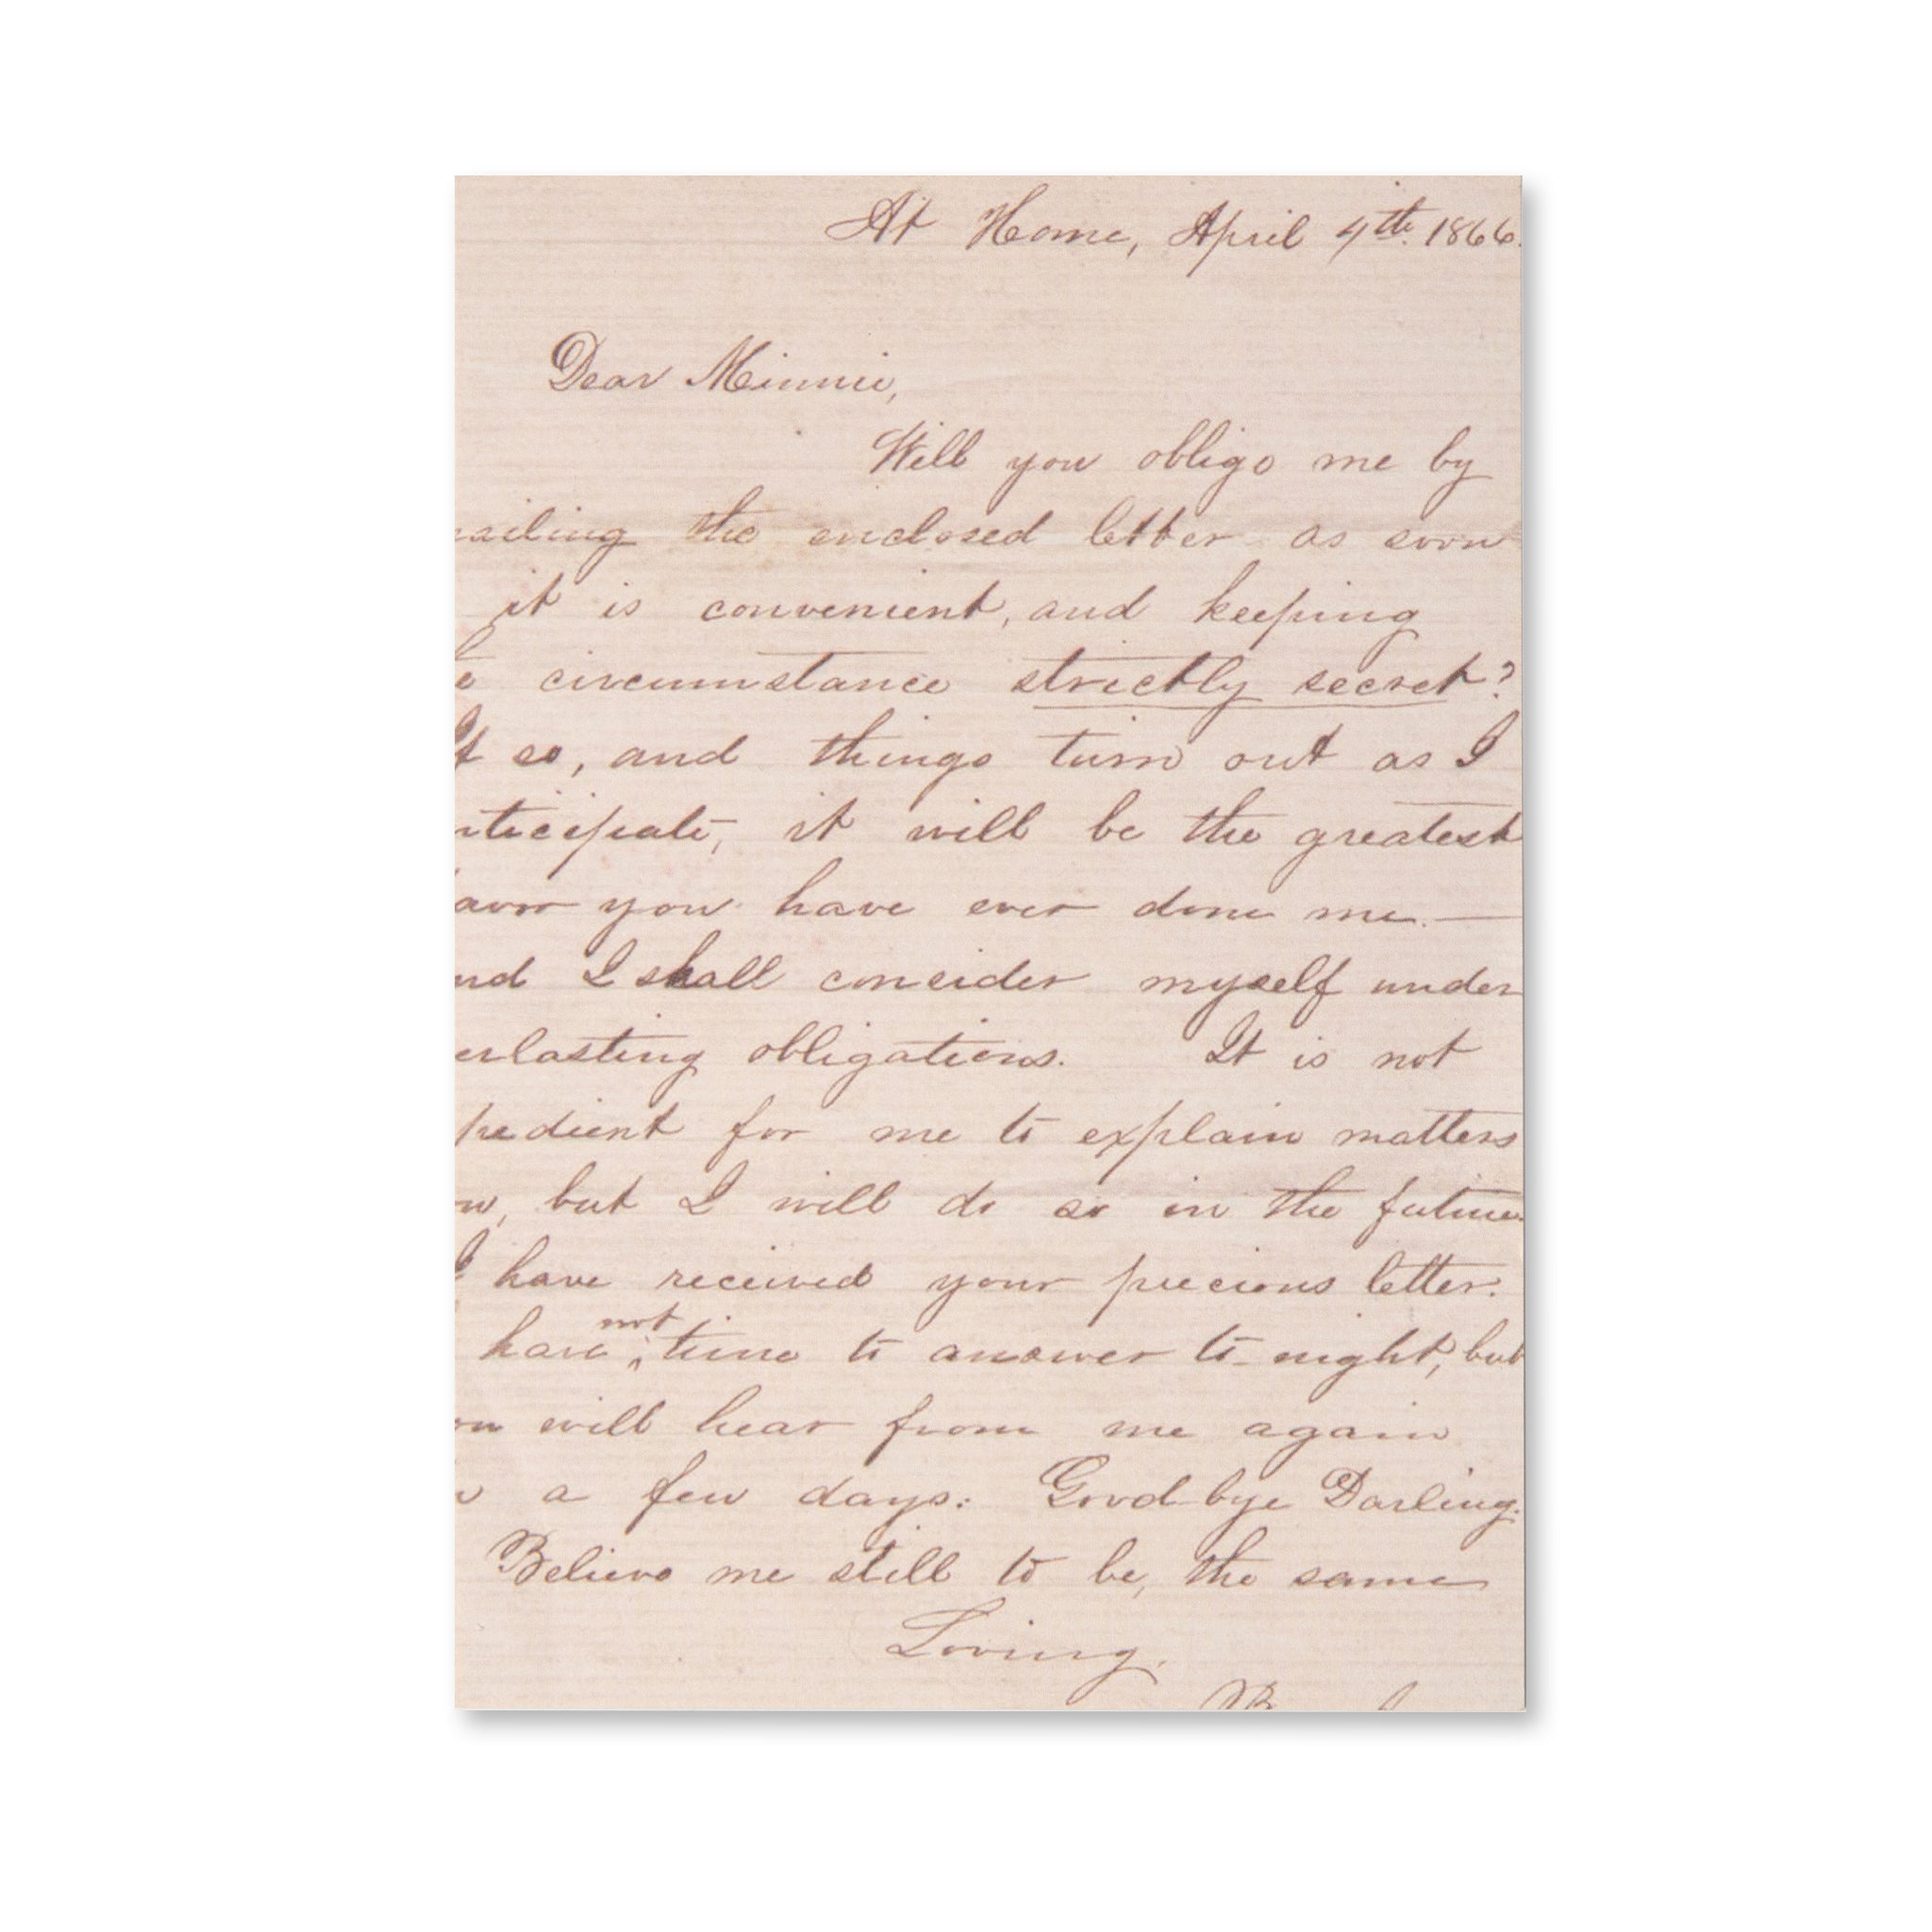 At Home, April 4th. 1866.
Dear Minnie,
Will you oblige me by
ailing the enclosed letter as soon
it is convenient, and keeping
e circumstance strictly secret?
If so, and things turn out as I
nticipate, it will be the greatest
avor you have ever done me.—
nd I shall consider myself under
erlasting obligations. It is not
pedient for me to explain matters
ow, but I will do so in the future.
I have received your precious letter.
have not time to answer to-night, but
ou will hear from me again
n a few days. Good-bye Darling.
Believe me still to be, the same
Loving.